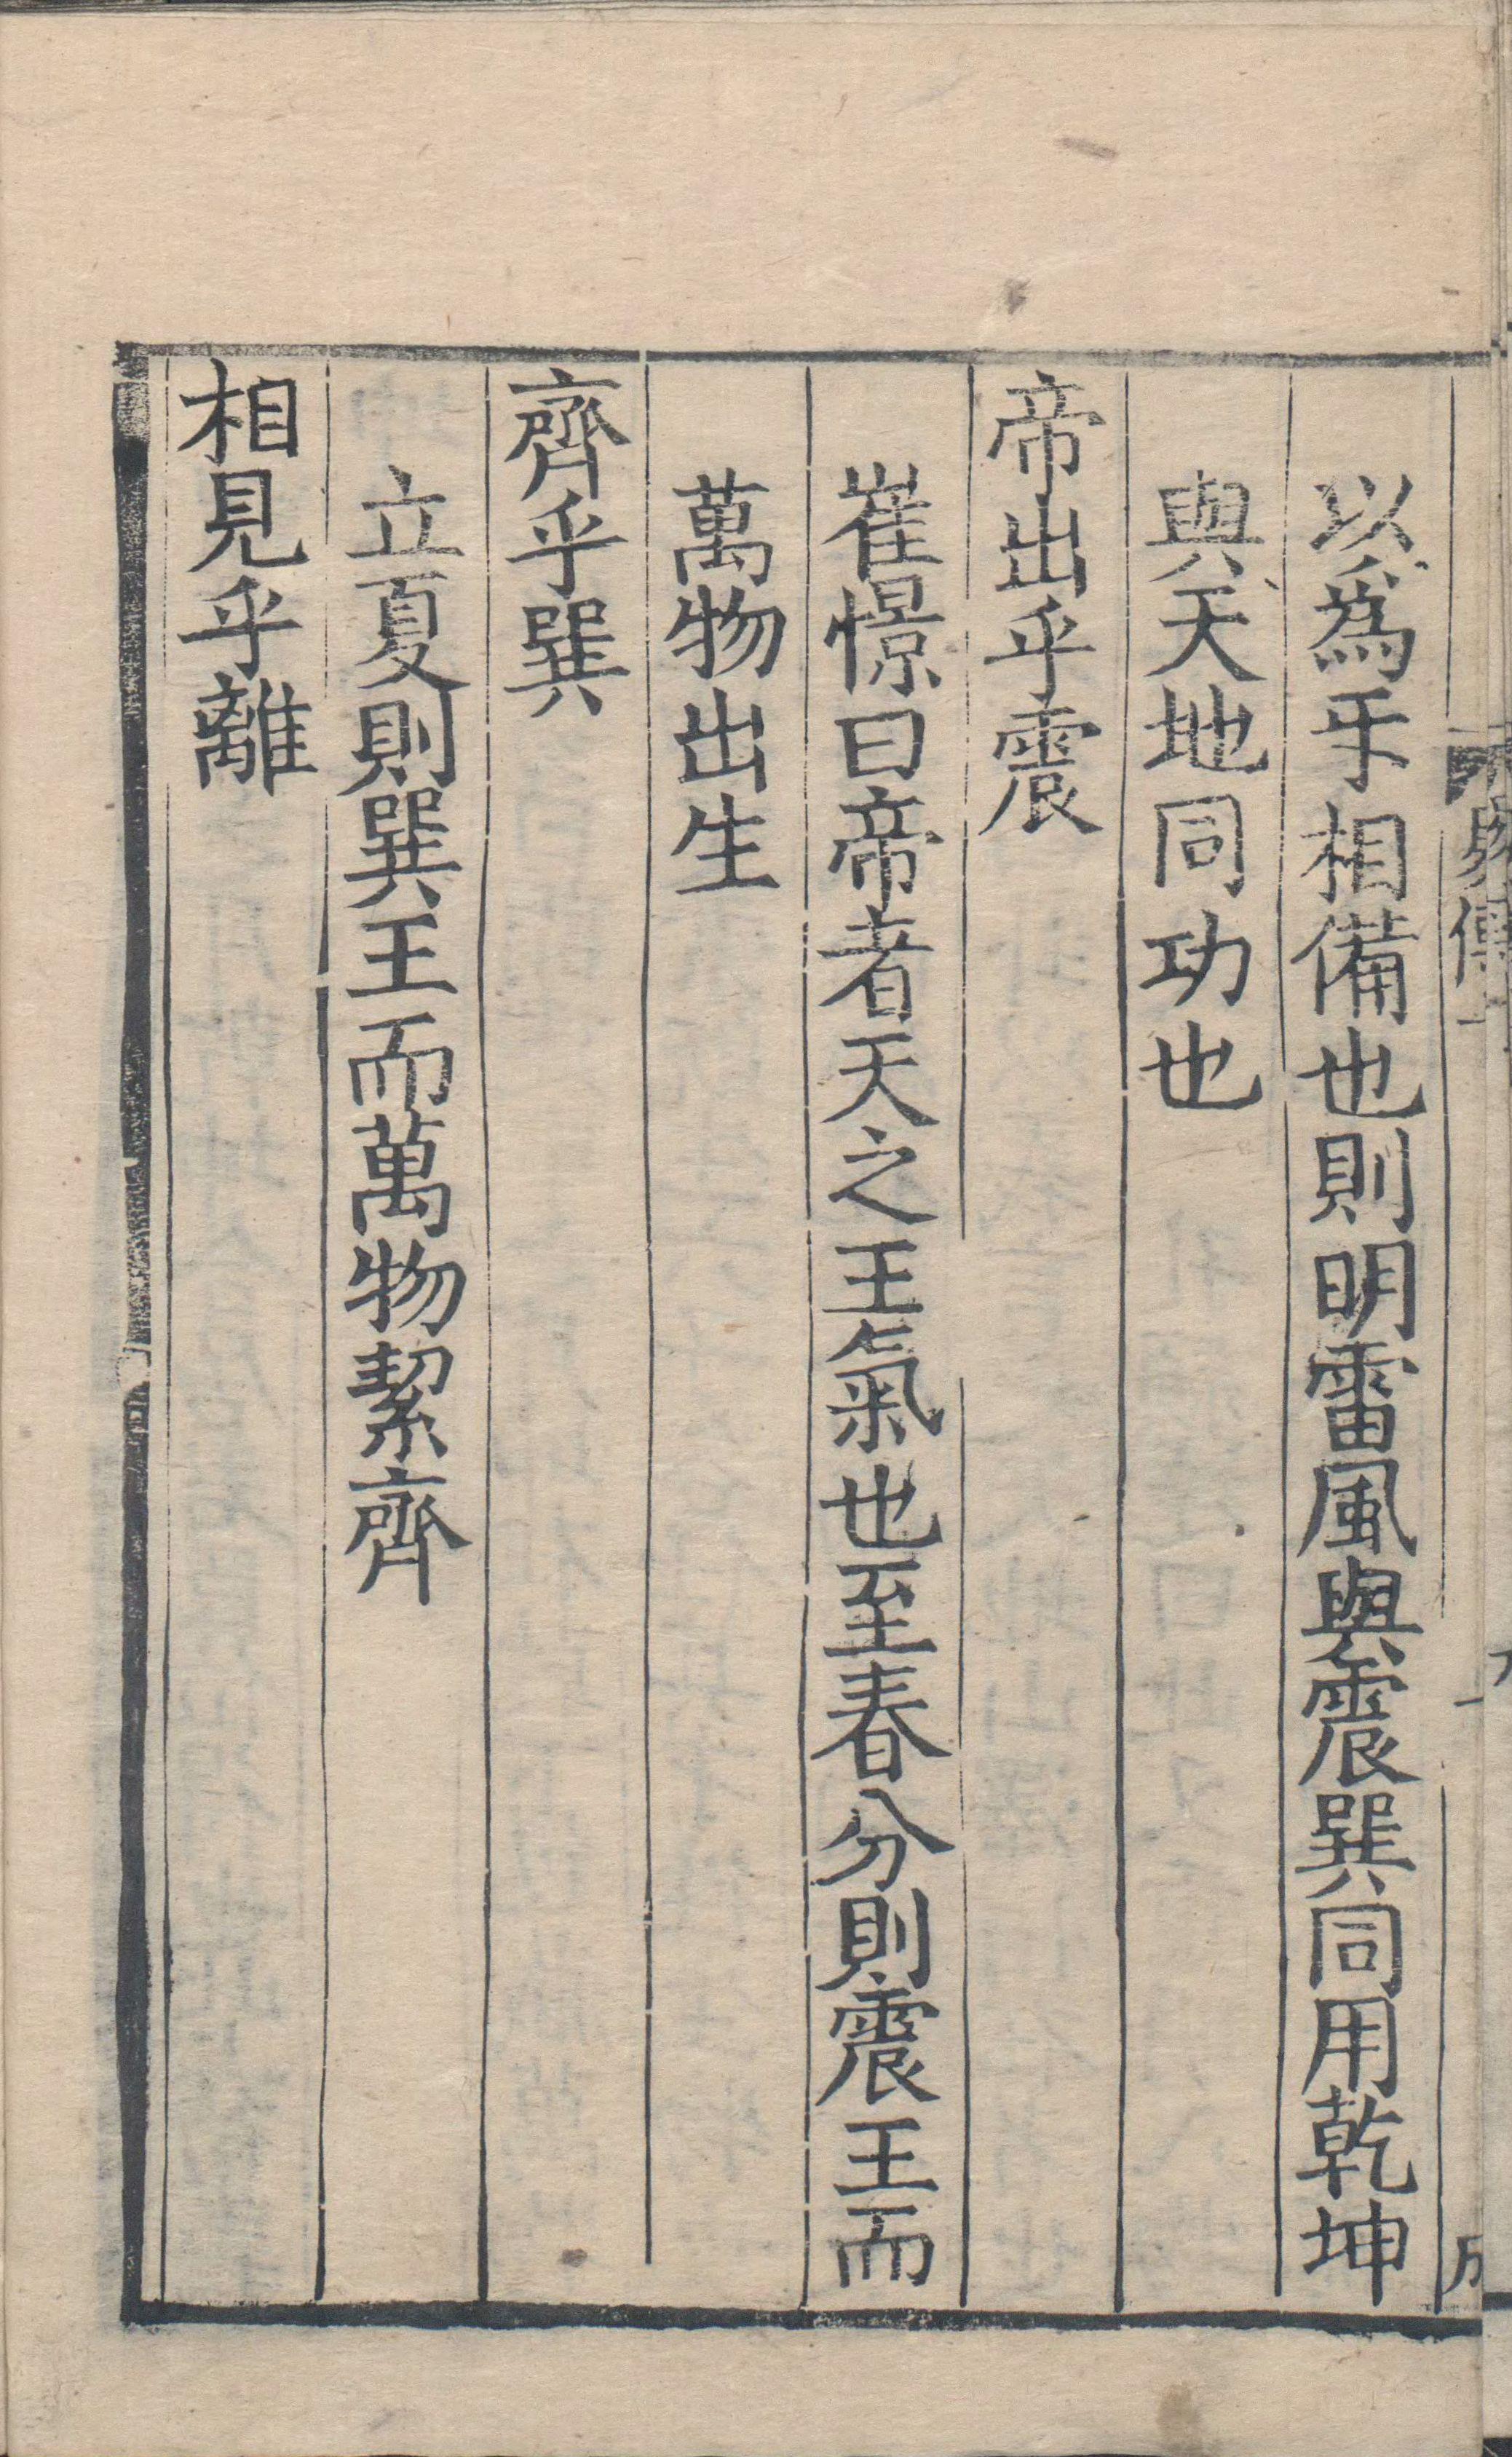 以爲㸦相備也則明雷風與震巽同用乾坤
與天地同功也
帝出乎震
崔憬曰帝者天之王氣也至春分則震王而
萬物出生
齊乎巽
立夏則巽王而萬物絜齊
相見乎離